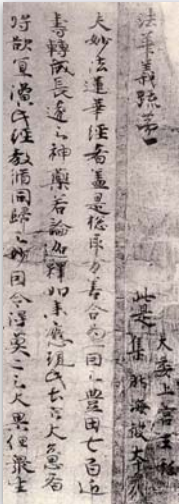 法華義疏第一
此是
大委上宮王私
集非海彼本
夫妙法蓮華經者蓋是惣取万善合為一因之豊田七百近
壽轉成長遠之神藥若論釋如来應現此土大意者
将欲宜演此經教脩同歸之妙因令得莫二之大果但衆生